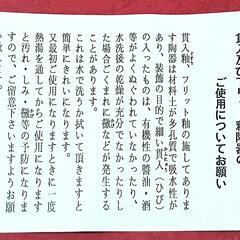 ご使用についてお願い
貫入釉、フリット釉の施してありま
す陶器は材料土が多孔質で吸水性が
あり、装飾の目的で細い貫入（ひび）
の入ったものは、有機性の醤油・酒
等がよくぬぐわれていなかったり、
水洗後の乾燥が充分でなかったりし
た場合ごくまれに黴などが発生する
ことがあります。
これは水で洗うか拭いて頂きますと
簡単にきれいになります。
又最初ご使用になりますときに一度
熱湯を通してからご使用になります
と汚れ・しみ・黴等の予防になりま
すので、ご留意下さいますようお願